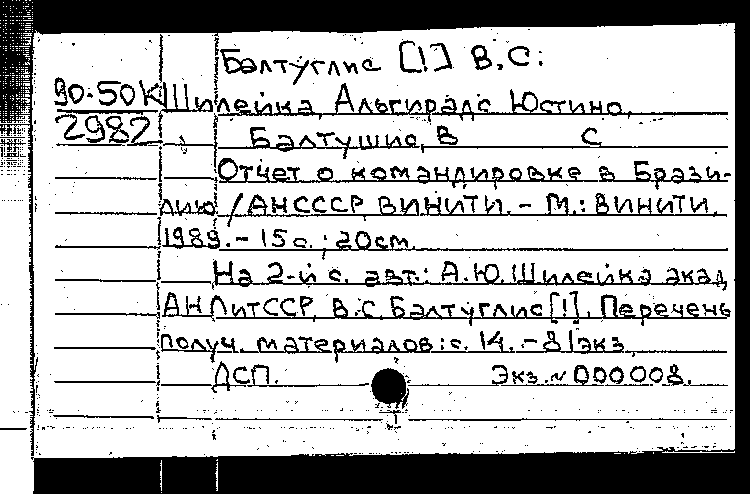 Балтуглис [!] В.С:
90-50К Шилейка, Альгирадс Юстино,
2982 Балтушис, В С
Отчет о командировке в Брази-
лию / АНСССР, ВИНИТИ. - М.: ВИНИТИ,
1989. - 15 с.; 20см.
На 2-й с. авт.: А.Ю. Шилейка акад.
АН ЛитССР, В.С. Балтуглис [!]. Перечень
получ. материалов: с. 14. - 81экз.
ДСП. Экз. N 000008.